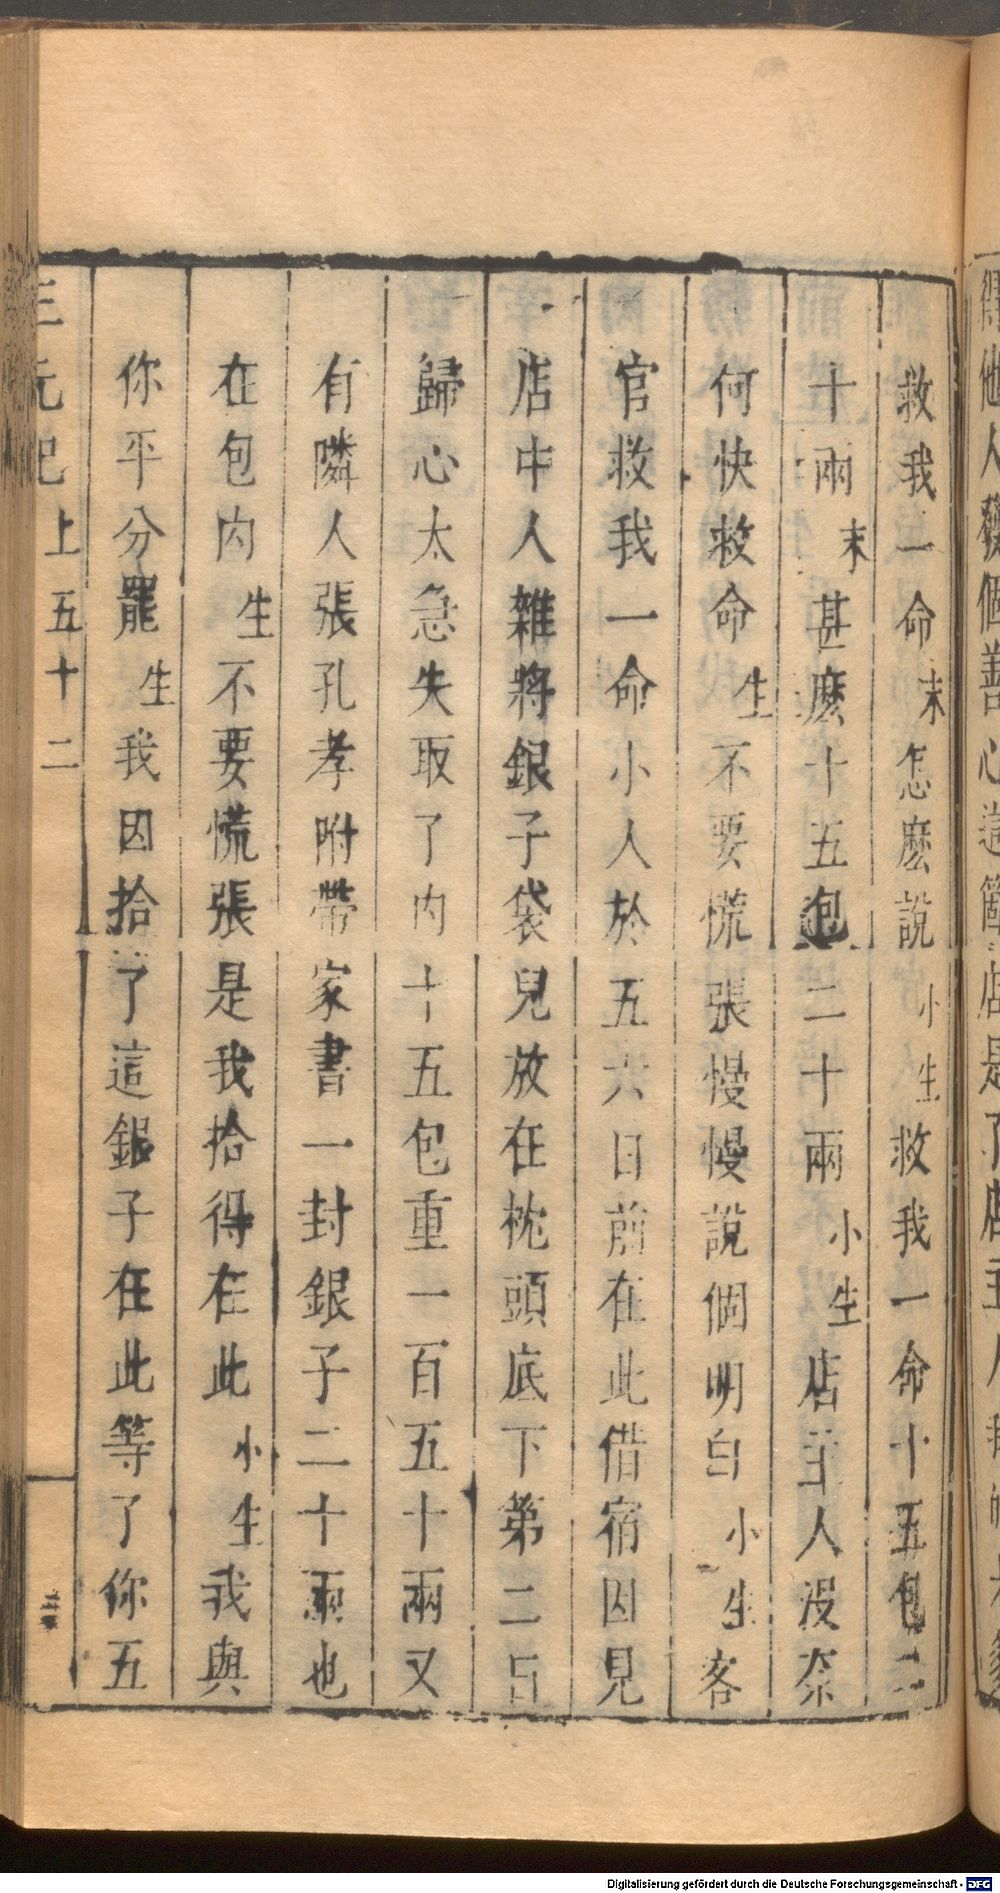 救我一命末怎麽說小生救我一命十五包二
十兩末甚麽十五包二十兩小生店主人沒奈
何快救命生不要慌張慢慢說個明白小生客
官救我一命小人於五六日前在此借宿因見
店中人雜將銀子袋兒放在枕頭底下第二日
歸心太急失取了內十五包重一百五十兩又
有隣人張孔孝附帶家書一封銀子二十兩也
在包內生不要慌張是我拾得在此小生我與
你平分罷生我因拾了這銀子在此等了你五
三元記上五十二
Digitalisierung gefördert durch die Deutsche Forschungsgemeinschaft - DFG